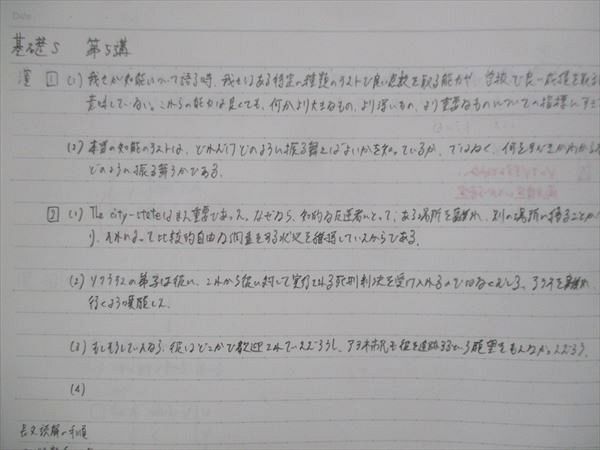 Date
基礎S 第5講
演 1 (1) 我々が知能について語る時、我々はある特定の種類のテストで良い点数を取る能力や、学校で良い成績を取る
意味していない。これらの能力は良くても、何かより大きなもの、より深いもの、より重要なものについての指標にすぎ
(2) 本当の知能のテストは、どれだけどのように振る舞えばよいかを知っているか、ではなく、何をすべきかわからな
どのように振る舞うかである。
2 (1) The city-stateは重要であった。なぜなら、知的な反逆者にとって、ある場所を離れ、別の場所に移ることが
り、それによって比較的自由な調査をする状況を維持していたからである。
(2) ソクラテスの弟子は彼に、これから彼に対して実行される死刑判決を受け入れるのではなくむしろ、アテネを離れ
行くよう懇願した。
(3) もしそうしていたなら、彼はどこかで歓迎されていただろうし、アテネ市民も彼を追跡するという願望をもたなかっただろう。
(4)
長文読解の手順